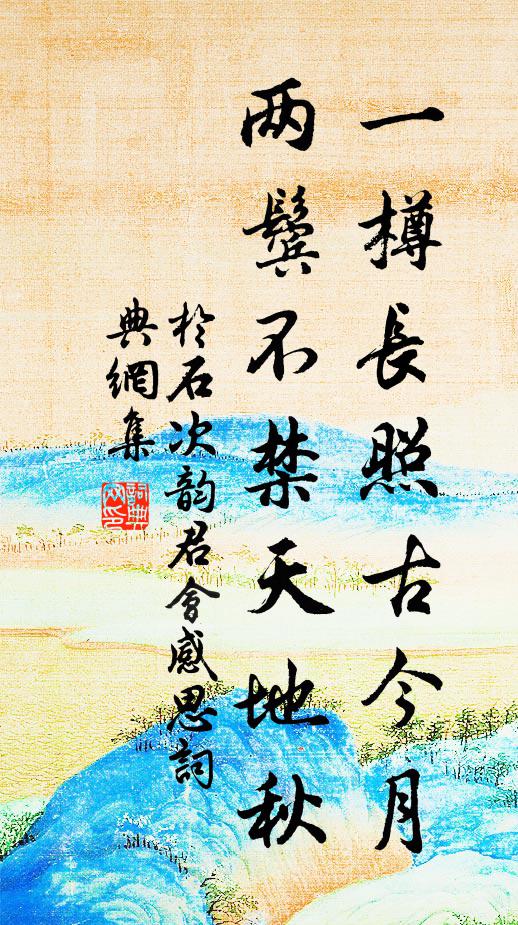 一樽長照古今月
两鬓不禁天地秋
於石次韵君會感思詞
典網集
詞典